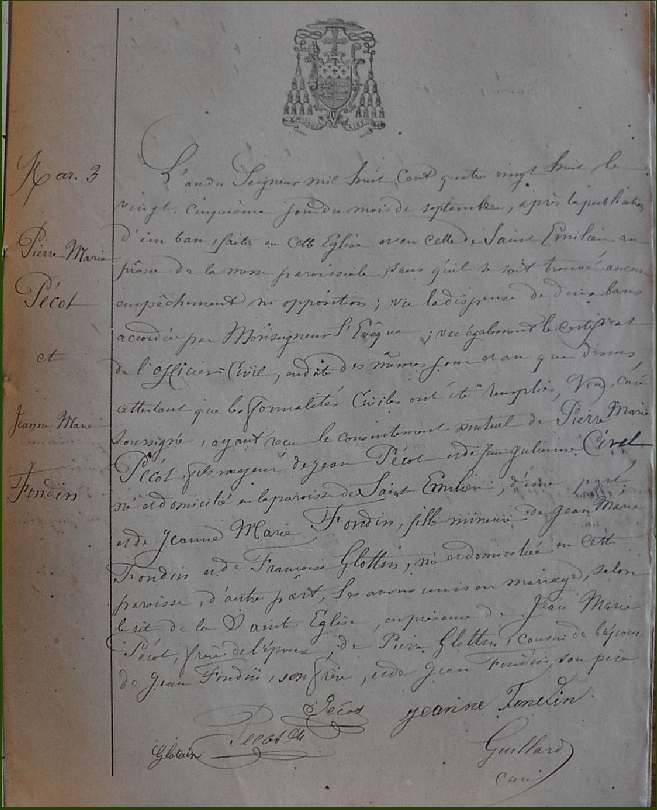 Mar. 3
Pierre Marie
Pécot
et
Jeanne Marie
Fondin
L'an du Seigneur mil huit Cent quatre vingt huit le
vingt-cinquième jour du mois de septembre, après la publication
d'un ban faite en cette Eglise et en celle de Saint Emilien au
prône de la messe paroissiale, sans qu'il se soit trouvé aucun
empêchement ni opposition ; vu la dispense de deux bans
accordée par Monseigneur l'Evêque ; vu également le certificat
de l'officier Civil, en date des mêmes jour et an que dessus,
attestant que les formalités Civiles ont été remplies, Nous, curé
soussigné, ayant reçu le consentement mutuel de Pierre Marie
Pécot fils majeur de Jean Pécot et de Julienne Civel
né et domicilié en la paroisse de Saint Emilien, d'une part
et de Jeanne Marie Fondin, fille mineure de Jean Marie
Fondin et de Françoise Glottin, née et domiciliée en cette
paroisse, d'autre part, les avons unis en mariage, selon
le rit de la Sainte Eglise, en présence de Jean Marie
Pécot, frère de l'époux, de Pierre Glottin, cousin de l'épouse
de Jean Fondin, son frère, et de Jean Fondin, son père
Pécot Jeanne Fondin
Glotain Pecot
Guillard
curé